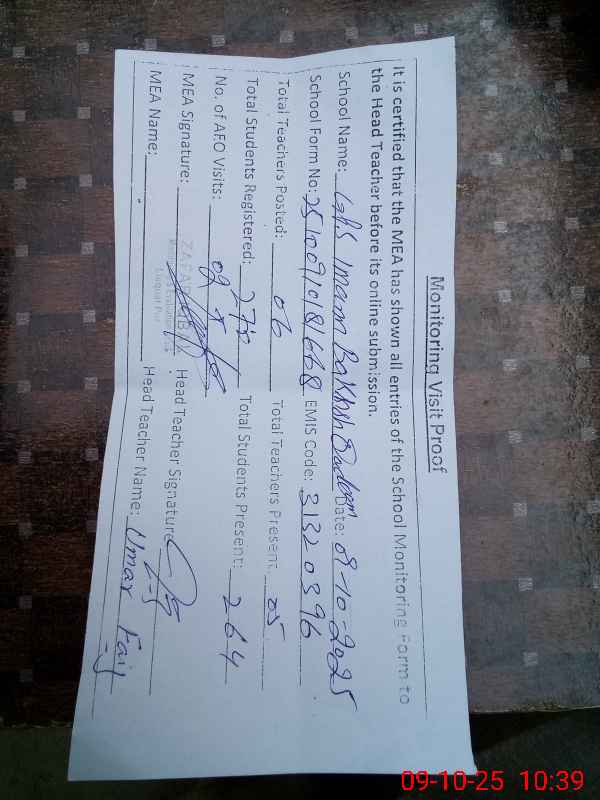 Monitoring Visit Proof
It is certified that the MEA has shown all entries of the School Monitoring Form to
the Head Teacher before its online submission.
School Name: G.P.S Imam Bakhsh Date: 09-10-2025
School Form No: EMIS Code: 31320396
Total Teachers Posted: 06 Total Teachers Present: 05
Total Students Registered: Total Students Present: 264
No. of AEO Visits:
MEA Signature: Head Teacher Signature
MEA Name: Head Teacher Name: Umar
09-10-25 10:39